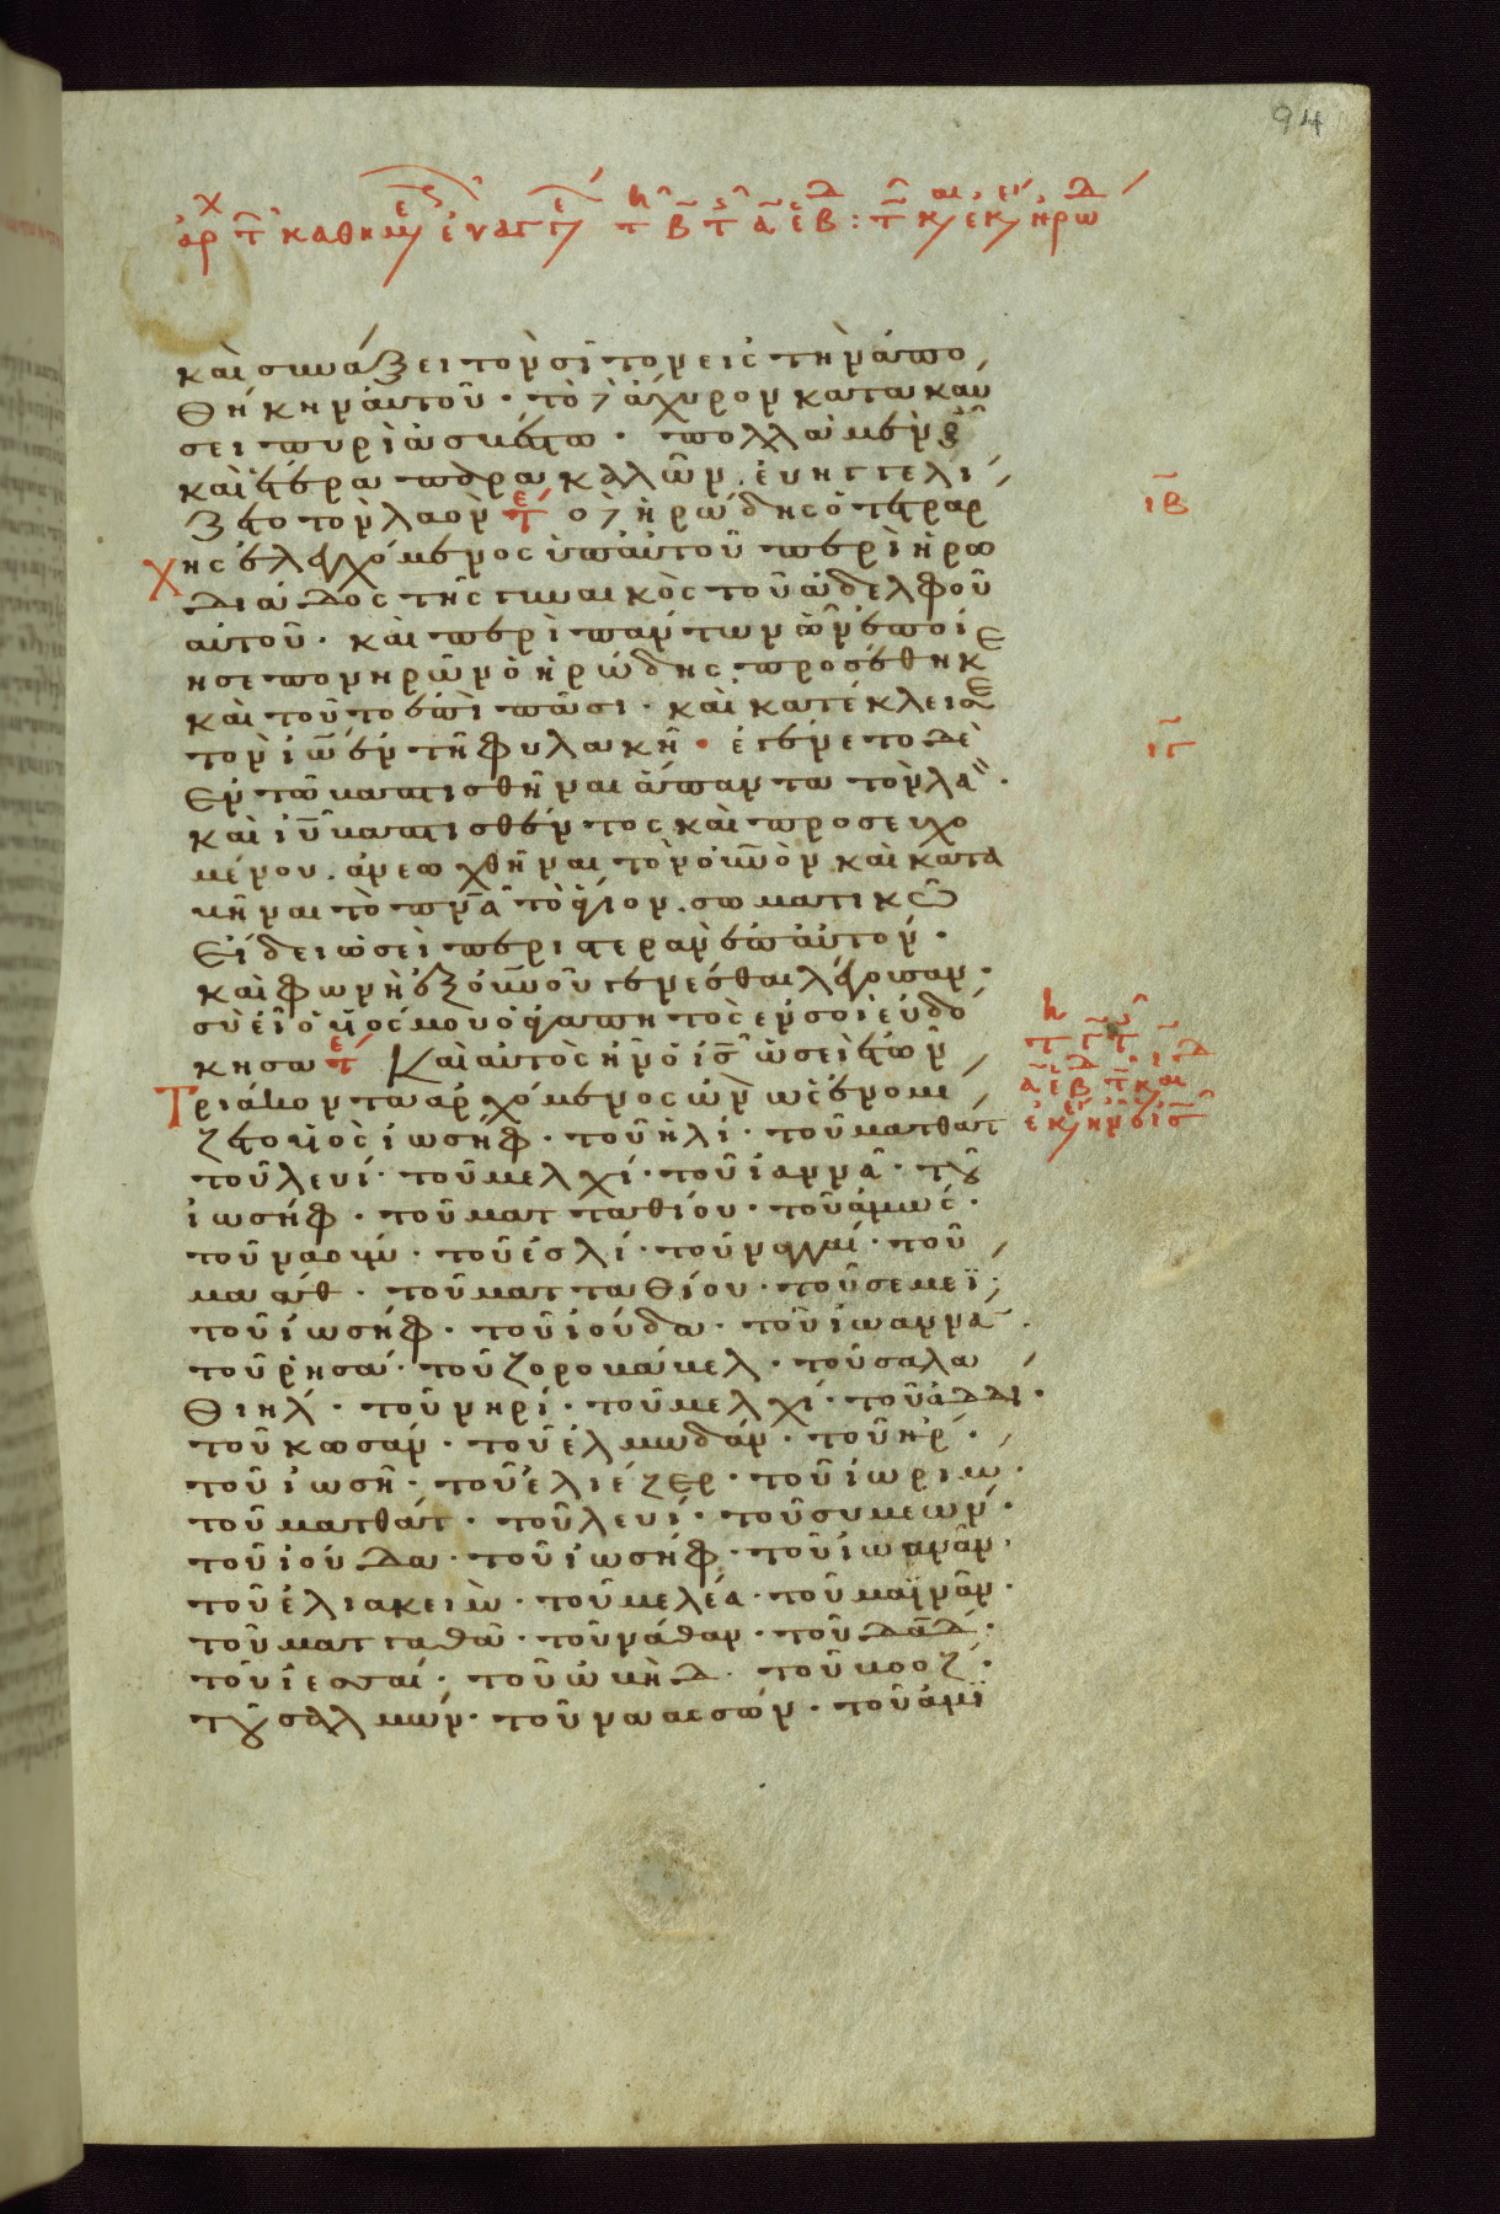 94
καὶ συνάξει τὸν σῖτον εἰς τὴν ἀπο
θήκην αὐτοῦ · τὸ δὲ ἄχυρον κατακαύ
σει πυρὶ ἀσβέστω · πολλὰ μὲν οὖν
καὶ ἕτερα παρακαλῶν. εὐηγγελί
ζετο τὸν λαὸν τε ὁ δὲ ἡρώδης ὁ τετραρ
χης ἐλεγχόμενος ὑπ αὐτοῦ περὶ ἡρω
διάδος τῆς γυναικὸς τοῦ ἀδελφοῦ
αὐτοῦ · καὶ περὶ πάντων ὧν ἐποί
ησε πονηρῶν ὁ ἡρώδης. προσέθηκε
καὶ τοῦτο ἐπὶ πᾶσι · καὶ κατέκλεισε
τὸν ἰω ἐν τῆ φυλακῆ · ἐγένετο δὲ
ἐν τῶ βαπτισθῆναι ἅπαντα τὸν λαὸν ·
καὶ ιυ βαπτισθέντος καὶ προσευχο
μένου. ἀνεωχθῆναι τὸν οὐνον καὶ κατα
βῆναι τὸ πνα τὸ ἅγιον. σωματικῶ
εἴδει ὡσεὶ περιστερὰν ἐπ αὐτόν ·
καὶ φωνὴν ἐξ οὐνοῦ γενέσθαι λέγουσαν ·
σὺ εἶ ὁ υἱός μου ὁ ἀγαπητὸς ἐν σοὶ εὐδό
κησα τε Καὶ αὐτὸς ἦν ὁ ις ὡσεὶ ἐτῶν
τριάκοντα ἀρχόμενος ὢν ὡς ἐνομί
ζετο υἱὸς ἰωσήφ · τοῦ ἡλί · τοῦ ματθάτ
τοῦ λευί · τοῦ μελχί · τοῦ ἰαννᾶ · τοῦ
ἰωσήφ · τοῦ ματταθίου · τοῦ ἀμώς ·
τοῦ ναούμ · τοῦ ἐσλί · τοῦ ναγγαί · τοῦ
μαάθ · τοῦ ματταθίου · τοῦ σεμεϊ ·
τοῦ ἰωσήφ · τοῦ ἰούδα · τοῦ ἰωαννᾶ ·
τοῦ ῥησά · τοῦ ζοροβάβελ · τοῦ σαλα
θιήλ · τοῦ νηρί · τοῦ μελχί · τοῦ ἀδδί ·
τοῦ κωσάμ · τοῦ ἐλμωδάμ · τοῦ ἤρ ·
τοῦ ἰωσῆ · τοῦ ἐλιέζερ · τοῦ ἰωρὶμ ·
τοῦ ματθάτ · τοῦ λευί · τοῦ συμεών ·
τοῦ ἰούδα · τοῦ ἰωσήφ · τοῦ ἰωανάν ·
τοῦ ἐλιακεὶμ · τοῦ μελέα · τοῦ μαϊνάν ·
τοῦ ματταθὰ · τοῦ νάθαν · τοῦ δαδ ·
τοῦ ἰεσσαί · τοῦ ὠβὴδ · τοῦ βοόζ ·
τοῦ σαλμών · τοῦ ναασσών · τοῦ ἀμϊ
ιβ
ιγ